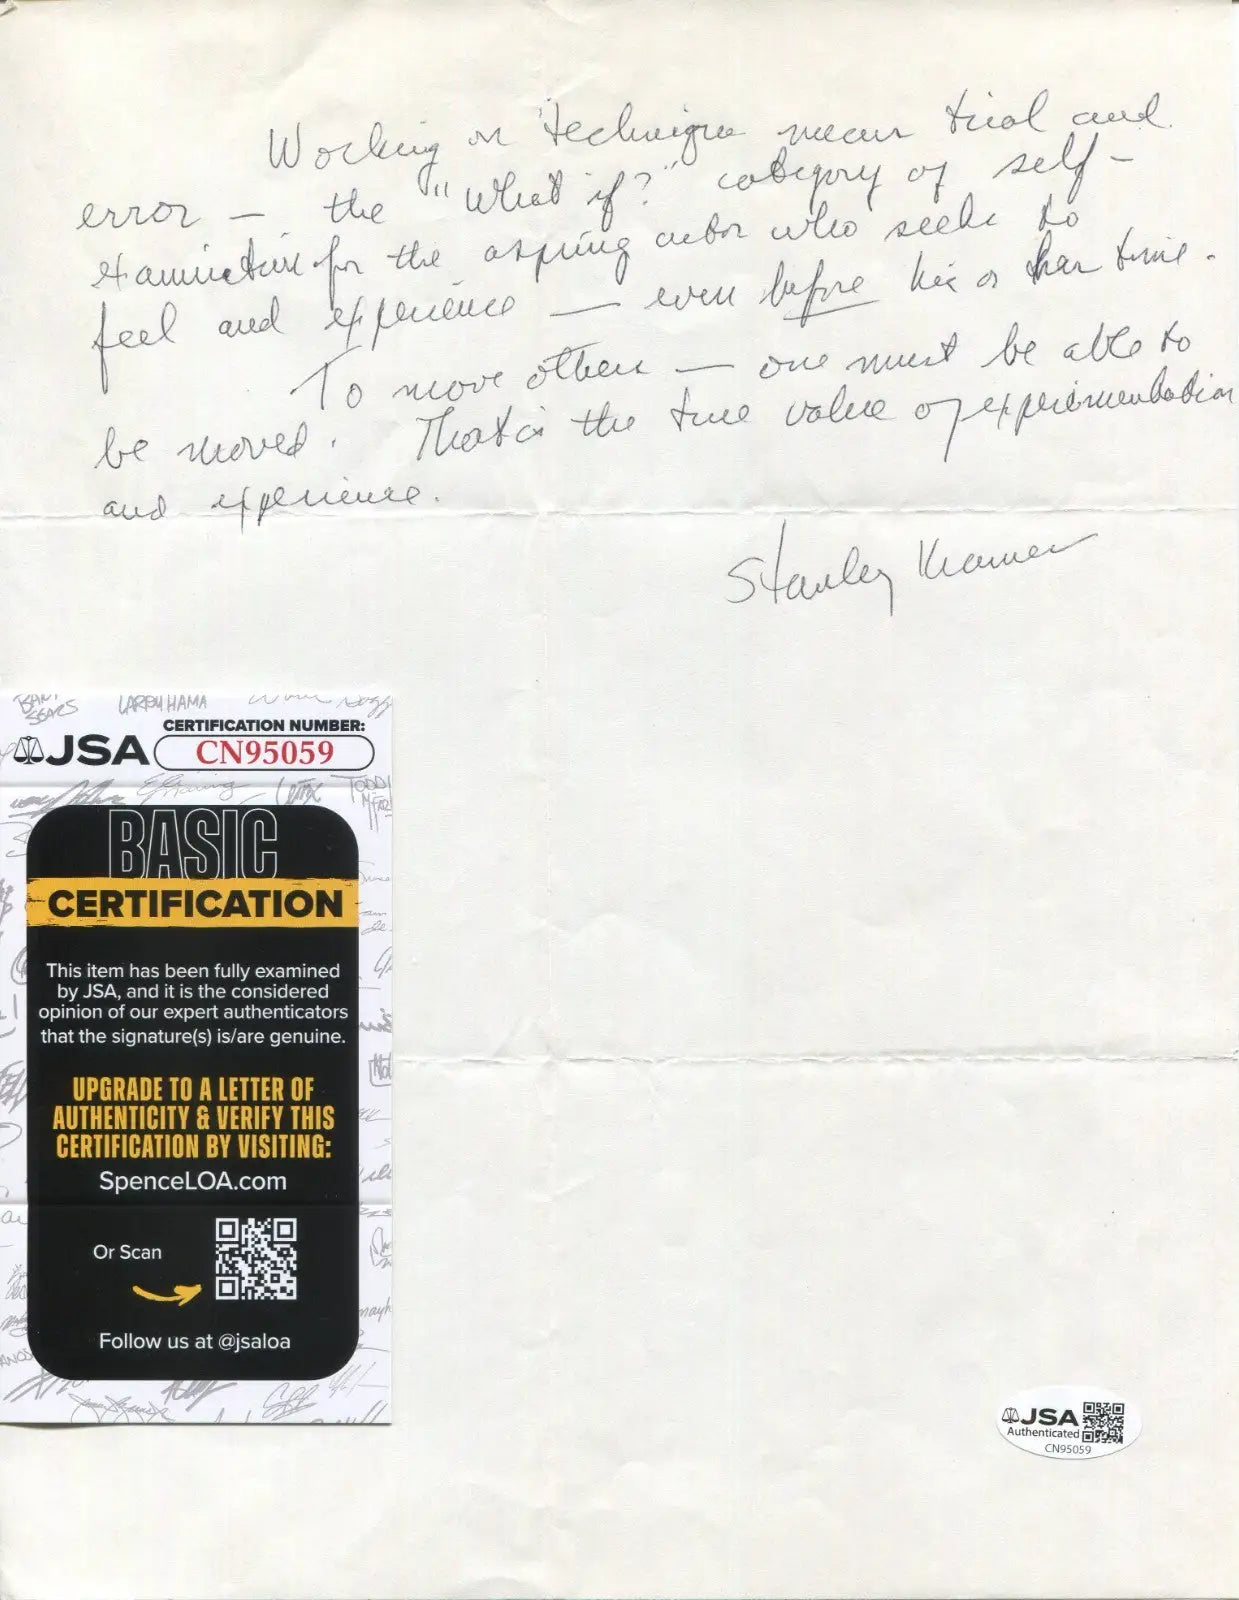 Working on technique means trial and
error — the "What if?" category of self-
examination for the aspiring actor who seeks to
feel and experience — even before his or her time.
To move others — one must be able to
be moved. That is the true value of experimentation
and experience.
Stanley Kramer
LARRY HAMA
CERTIFICATION NUMBER:
JSA CN95059
BASIC
CERTIFICATION
This item has been fully examined
by JSA, and it is the considered
opinion of our expert authenticators
that the signature(s) is/are genuine.
UPGRADE TO A LETTER OF
AUTHENTICITY & VERIFY THIS
CERTIFICATION BY VISITING:
SpenceLOA.com
Or Scan
Follow us at @jsaloa
JSA
Authenticated
CN95059